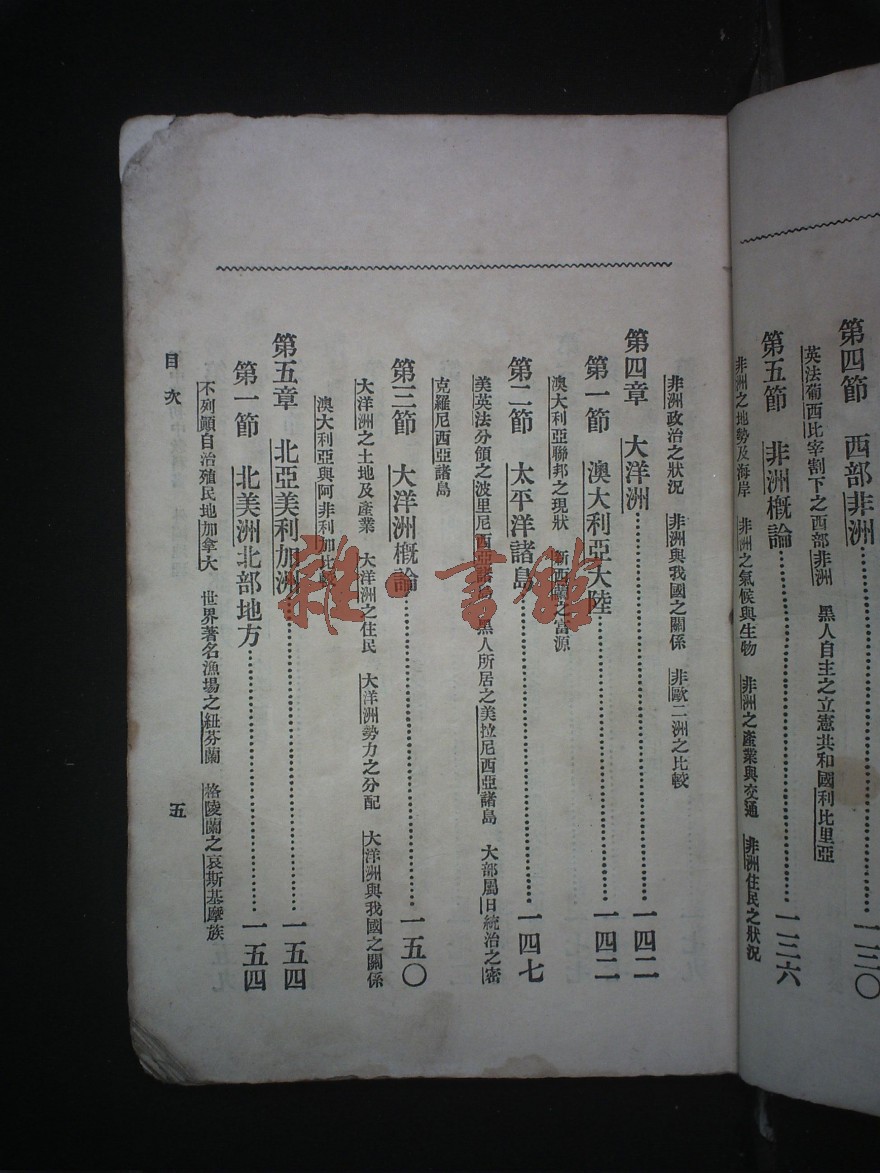 第四節　西部非洲……一三〇
英法葡西比宰割下之西部非洲　黑人自主之立憲共和國利比里亞
第五節　非洲概論……一三六
非洲之地勢及海岸　非洲之氣候與生物　非洲之產業與交通　非洲住民之狀況
非洲政治之狀況　非洲與我國之關係　非歐二洲之比較
第四章　大洋洲……一四二
第一節　澳大利亞大陸……一四二
澳大利亞聯邦之現狀　新西蘭之富源
第二節　太平洋諸島……一四七
美英法分領之波里尼西亞諸島　黑人所居之美拉尼西亞諸島　大部屬日統治之密
克羅尼西亞諸島
第三節　大洋洲概論……一五〇
大洋洲之土地及產業　大洋洲之住民　大洋洲勢力之分配　大洋洲與我國之關係
澳大利亞與阿非利加比較
第五章　北亞美利加洲……一五四
第一節　北美洲北部地方……一五四
不列顛自治殖民地加拿大　世界著名漁場之紐芬蘭　格陵蘭之哀斯基摩族
目次
五
雜·書館